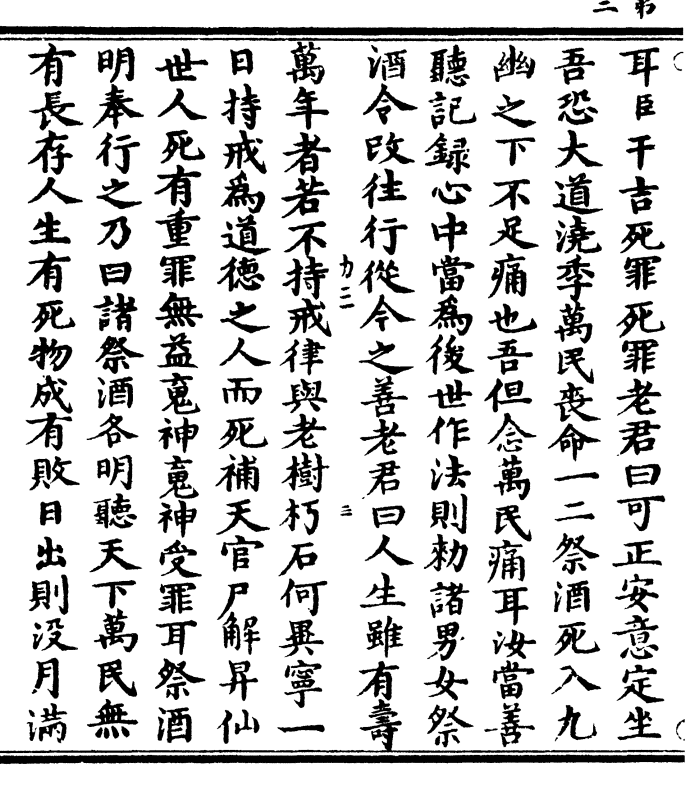 耳臣干吉死罪死罪老君曰可正安意定坐
吾恐大道澆季萬民喪命一二祭酒死入九
幽之下不足痛也吾但念萬民痛耳汝當善
聽記録心中當爲後世作法則勑諸男女祭
酒令改往行從今之善老君曰人生雖有壽
萬年者若不持戒律與老樹朽石何異寧一
力三
三
日持戒爲道德之人而死補天官尸解昇仙
世人死有重罪無益䰟神䰟神受罪耳祭酒
明奉行之乃曰諸祭酒各明聽天下萬民無
有長存人生有死物成有敗日出則没月滿